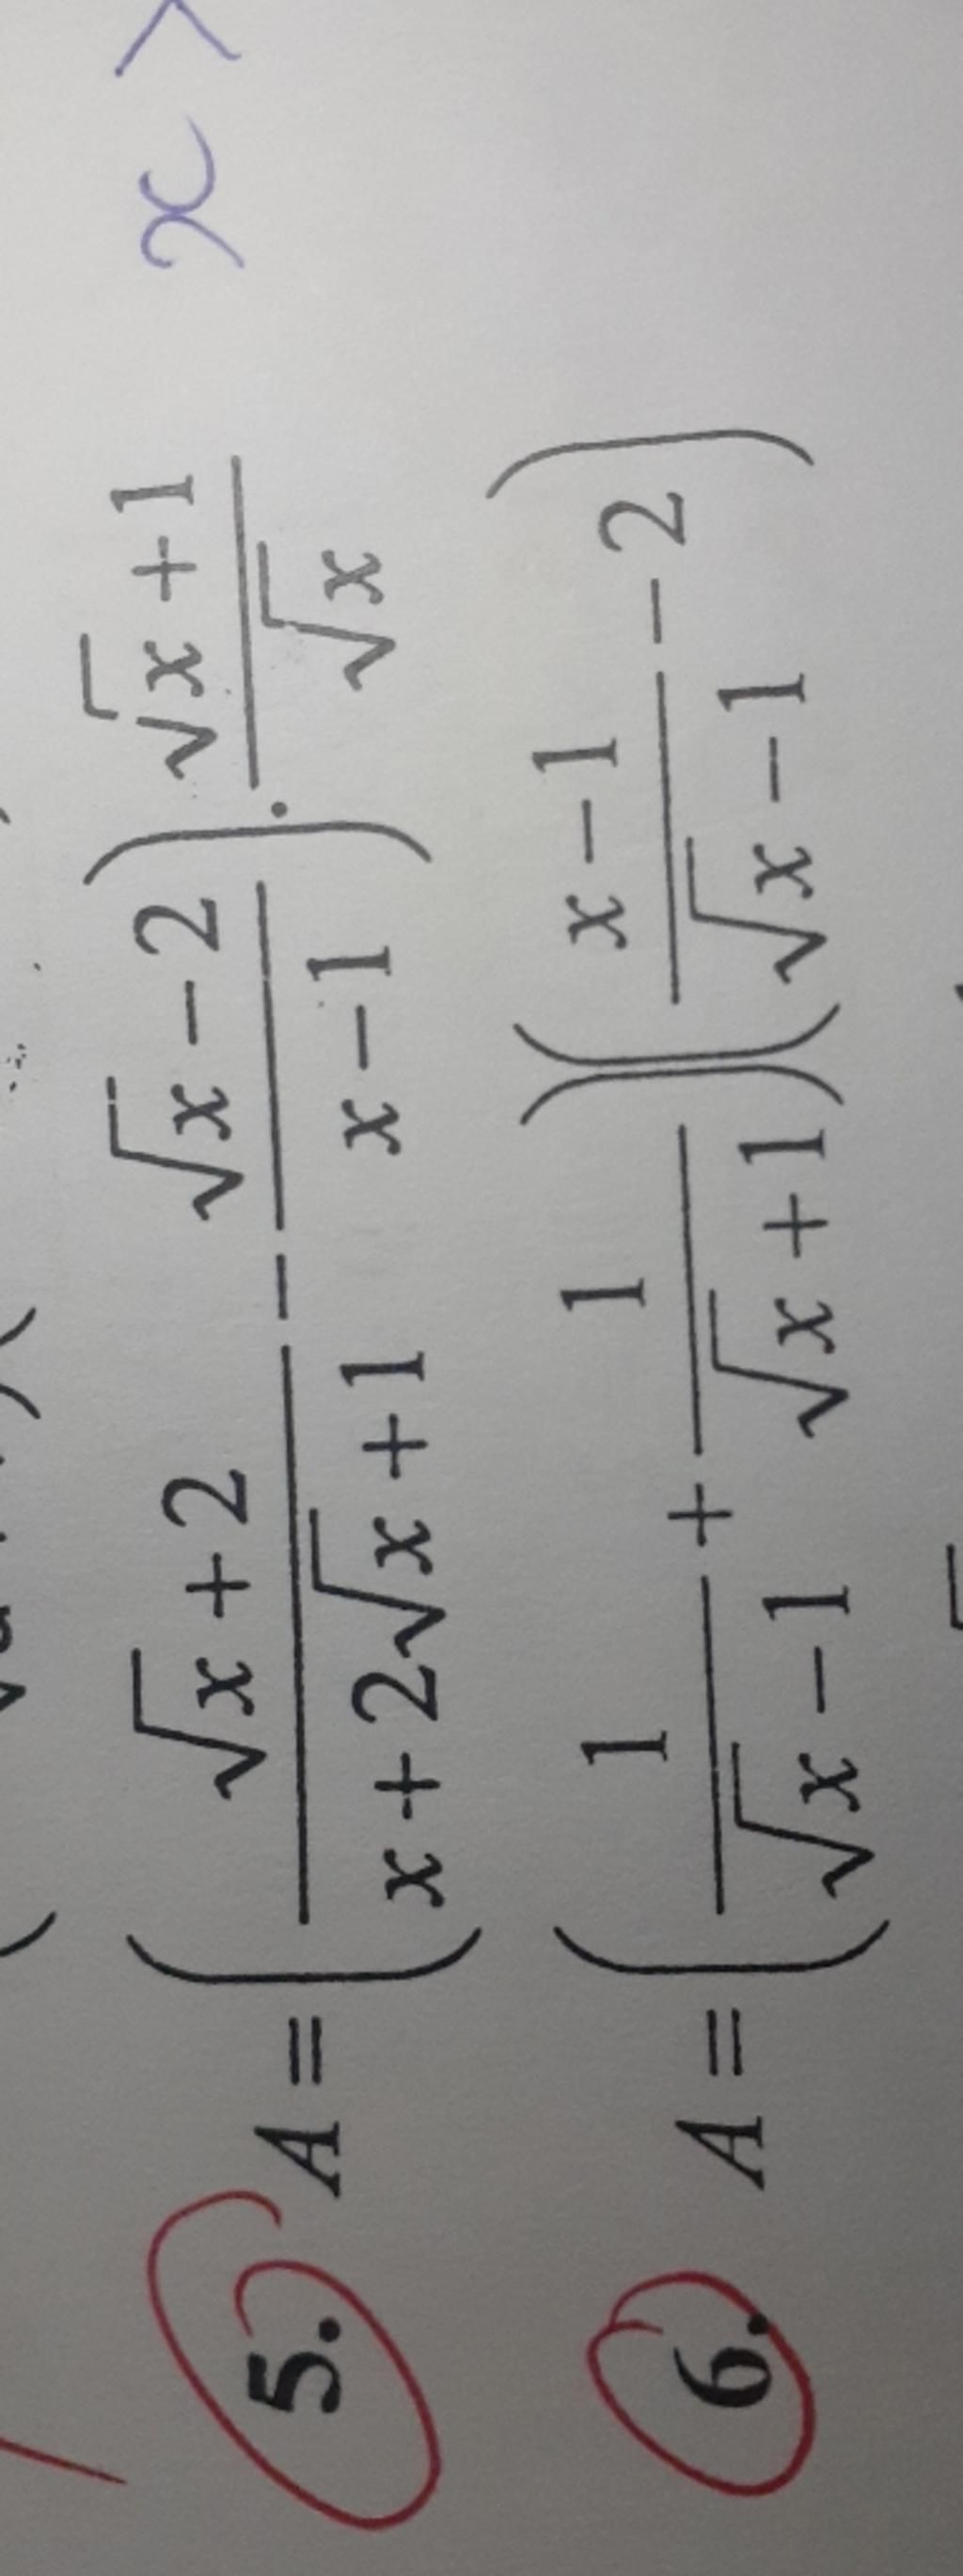 5. A = \left( \frac{\sqrt{x} + 2}{x + 2\sqrt{x} + 1} - \frac{\sqrt{x} - 2}{x - 1} \right) \cdot \frac{\sqrt{x} + 1}{\sqrt{x}} x >
6. A = \left( \frac{1}{\sqrt{x} - 1} + \frac{1}{\sqrt{x} + 1} \right) \left( \frac{x - 1}{\sqrt{x} - 1} - 2 \right)